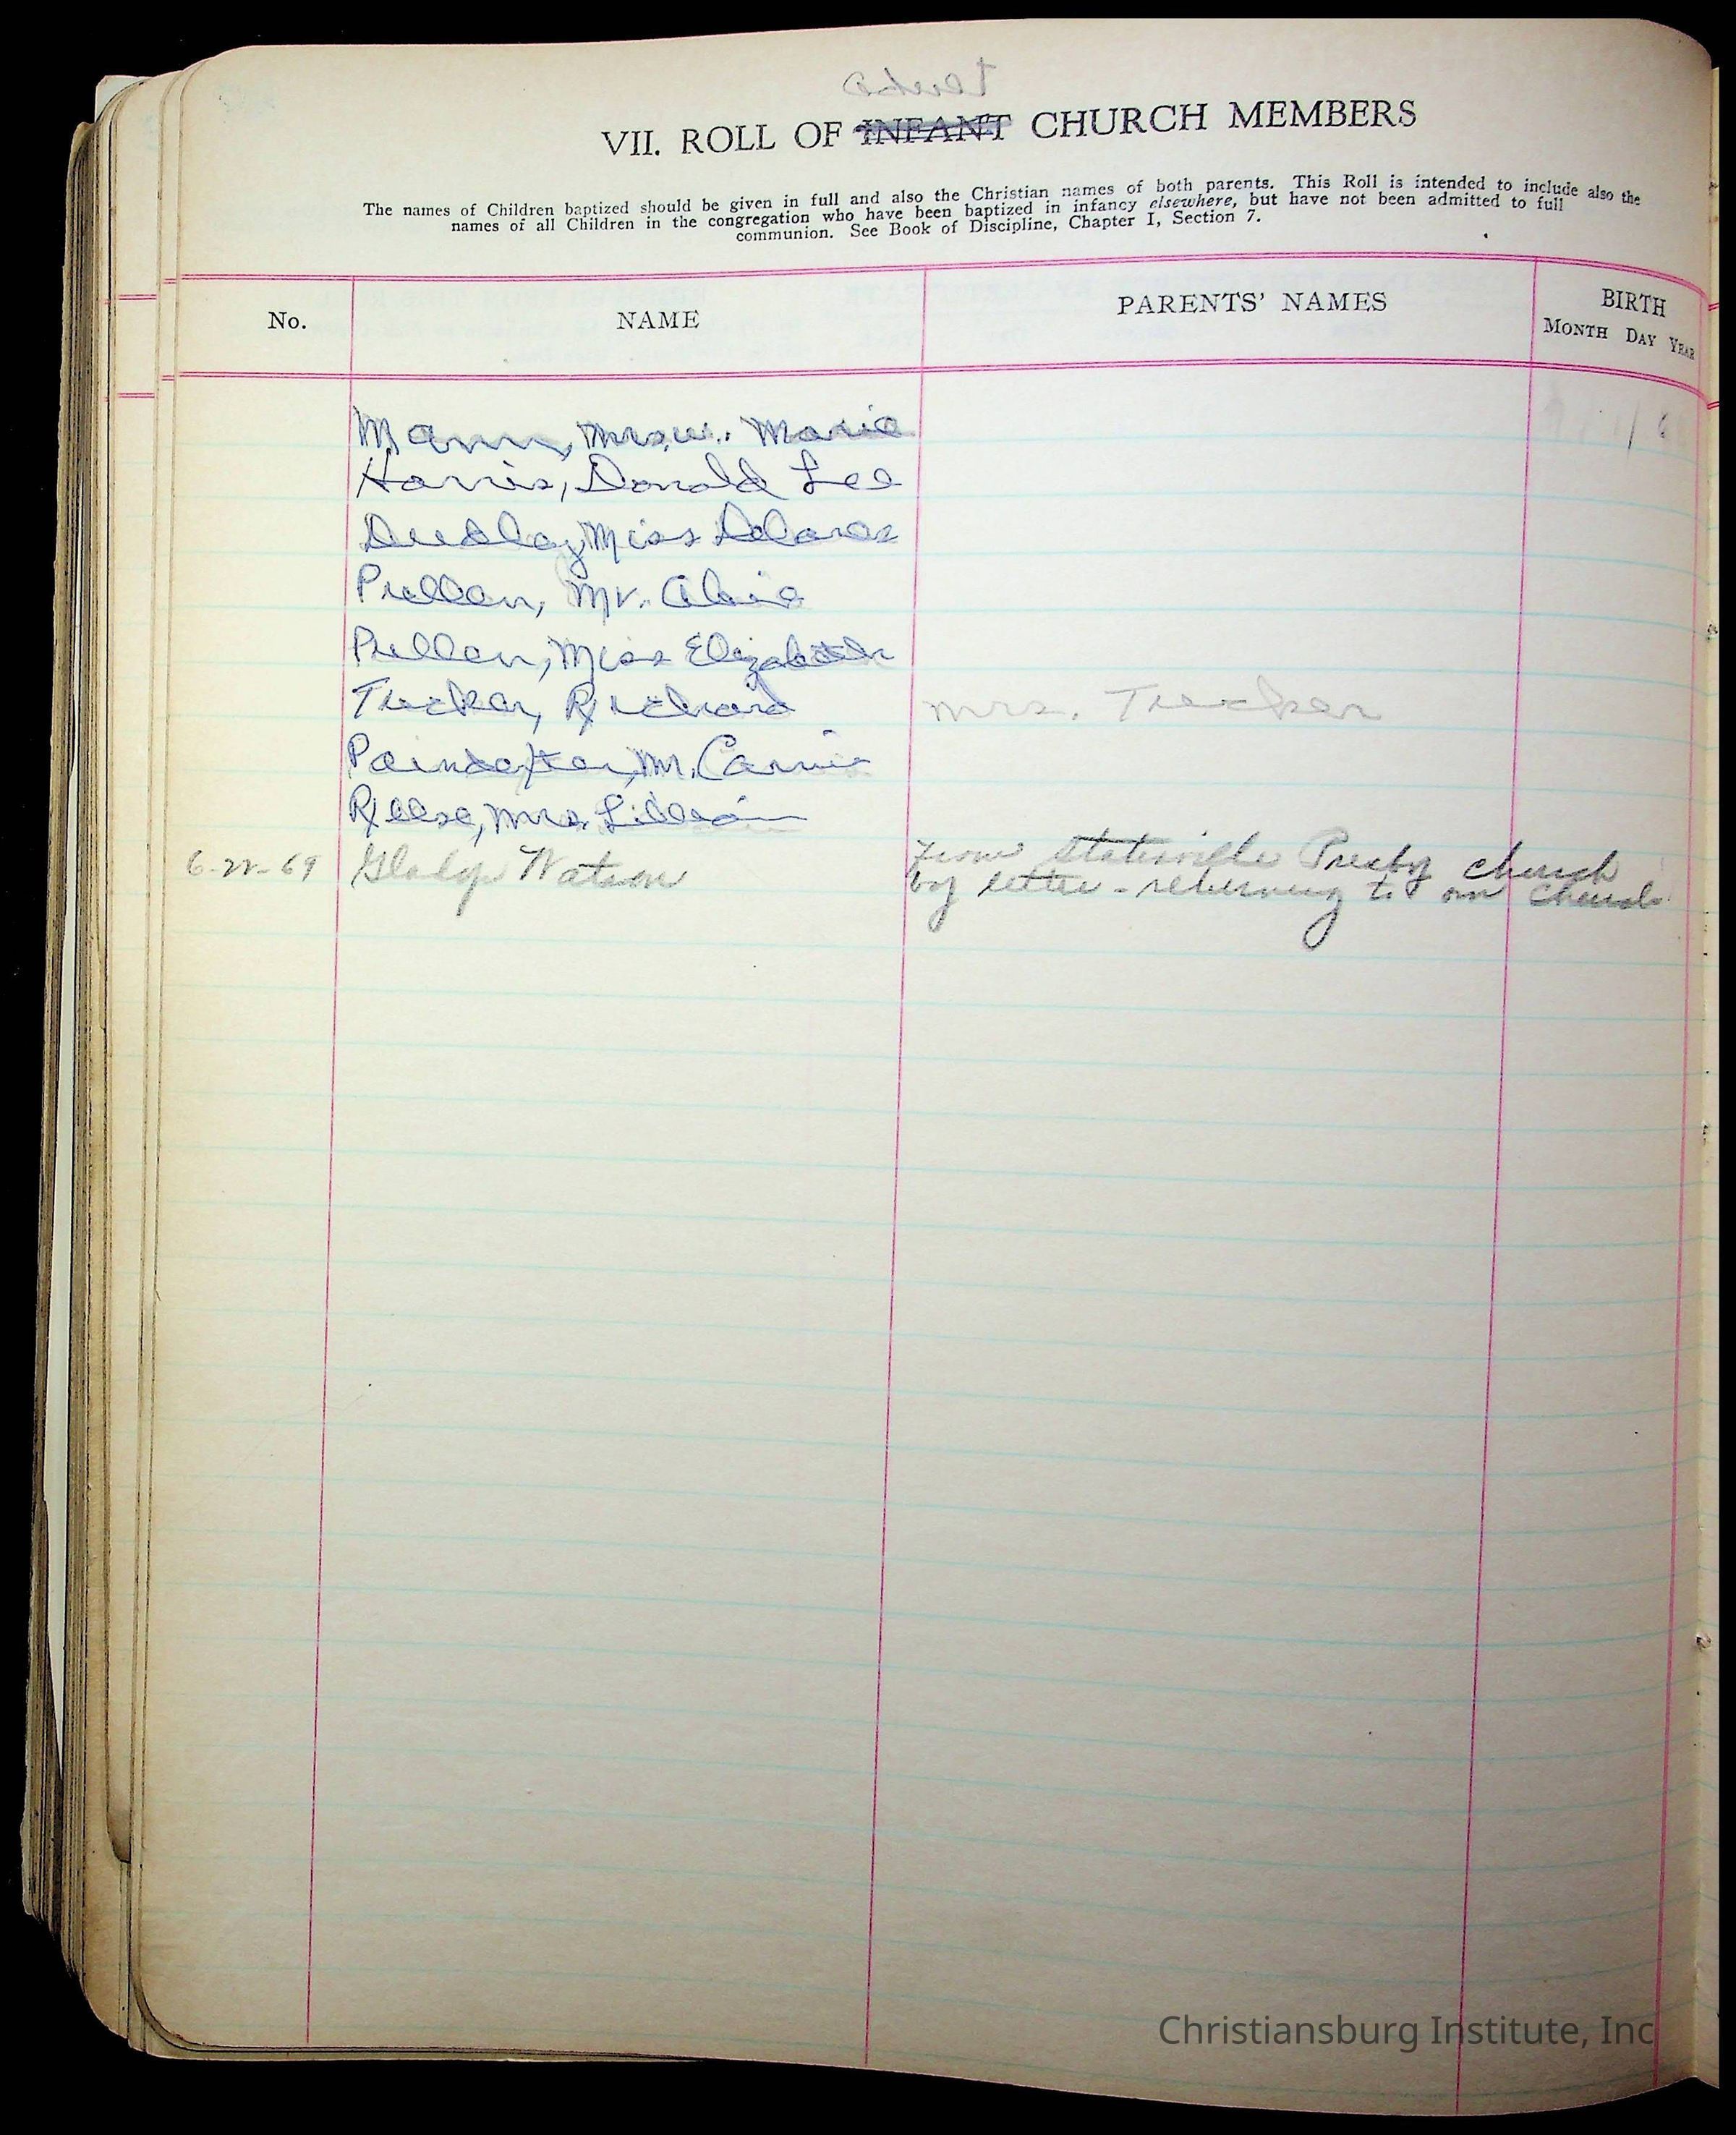 VII. ROLL OF INFANT CHURCH MEMBERS
The names of Children baptized should be given in full and also the Christian names of both parents. This Roll is intended to include also the
names of all Children in the congregation who have been baptized in infancy elsewhere, but have not been admitted to full
communion. See Book of Discipline, Chapter I, Section 7.
No. NAME PARENTS' NAMES BIRTH
MONTH DAY YEAR
Mann, Mrs. W. Marie
Harris, Donald Lee
Dudley, Miss Delores
Pullen, Mr.
Pullen, Miss Elizabeth
Tucker, Richard Mrs. Tucker
Poindexter, Mr.
Reese, Mrs. Lillian
6-22-69 Gladys Watson From Statesville Presby church
by letter - returning to our church
Christiansburg Institute, Inc